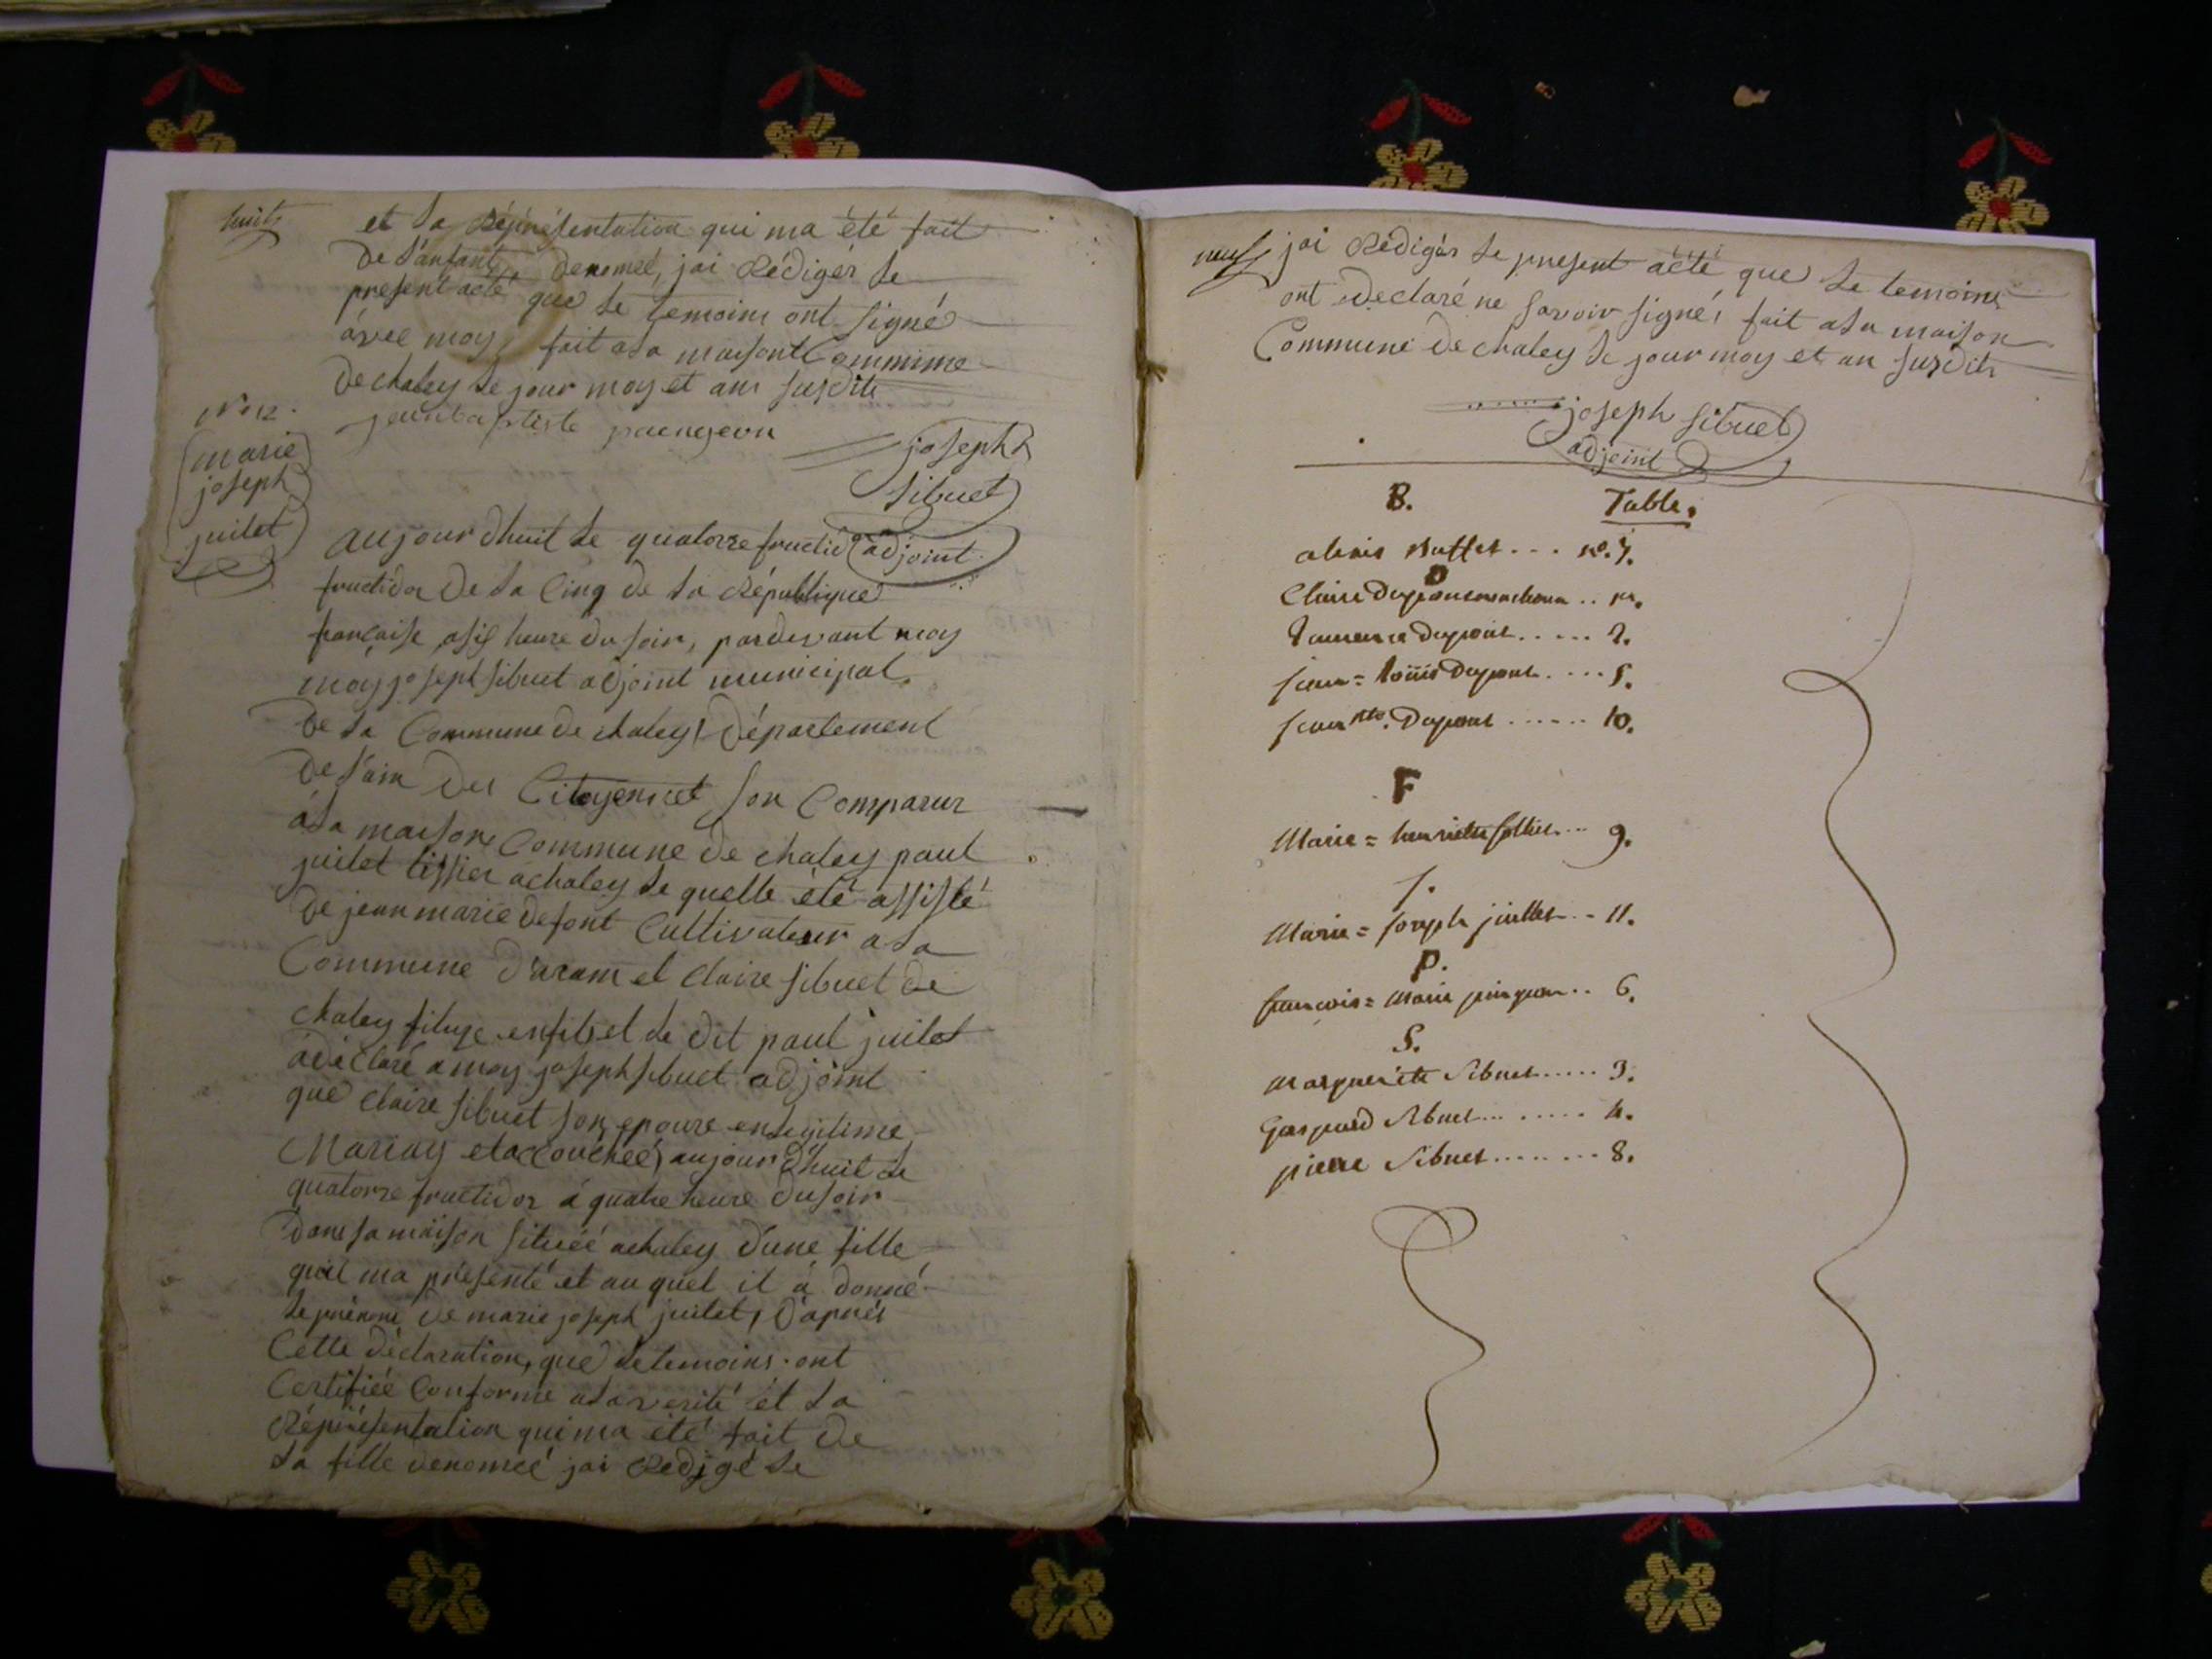 huit
et la Réprésentation qui ma été fait
De l'anfant denomeé, jai Rédigér le
present acté que le temoins ont signé
avec moy, fait a la maisont Commune
De chaley le jour moy et ans susdits
jeanbaptiste
joseph
sibuet
adjoint
No 12.
marie
joseph
juilet
aujourdhuit le quatorze fructid
fructidor De la Cinq de la République
francaise a six heure du soir, pardevant moy
moy joseph sibuet adjoint municipal
De la Commune de chaley, Département
De l'ain Des Citoyens et son Comparur
a la maison Commune de chaley paul
juilet tissier a chaley le quelle été assisté
De jean marie defont Cultivateur a la
Commune D'aram et Claire sibuet de
chaley et le dit paul juilet
a déclaré a moy joseph sibuet adjoint
que claire sibuet son epouse en legitime
Mariag et accouchée, aujourdhuit le
quatorze fructidor á quatre heure du soir
Dans sa maison situéé a chaley d'une fille
quil ma présenté et au quel it á donné
le prénom De marie joseph juilet, D'aprés
Cette déclaration, que le temoins ont
Certifiéé Conforme a la verité et la
Réprésentation qui ma été fait De
la fille denomeé jai Redigé le
neuf
jai Redigér le present acté que le temoins
ont declaré ne savoir signé, fait a la maison
Commune De chaley le jour moy et an susdits
joseph sibuet
adjoint
B. Table.
alexis Buffet... no. 7.
D
Claire Dupont .. 1er.
Laurence Dupont..... 2.
jean = Louiis Dupont.... 5.
jean Bte. Dupont ...... 10.
F
Marie = henriette ... 9.
J.
Marie = joseph juillet... 11.
P.
francois = Marie .. 6.
S.
Marguerite Sibuet..... 3.
Gaspard Sibuet........ 4.
pierre Sibuet........ 8.